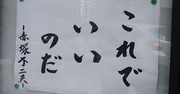 これで
いい
のだ
-赤塚不二夫-